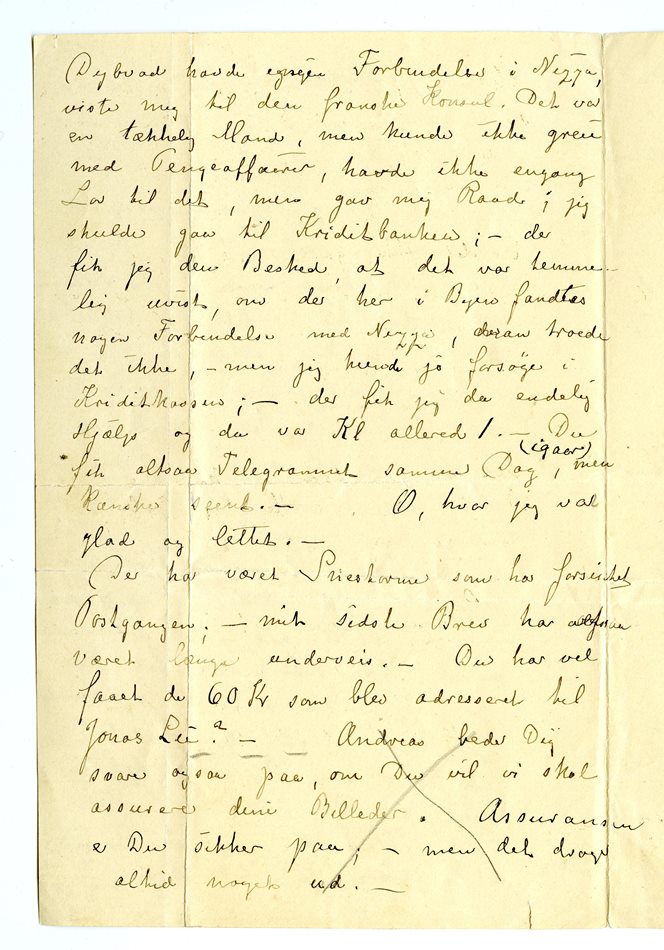 Dybvad havde ingen Forbindelse i Nezza,
viste meg til den franske Konsul. Det var
en tækkelig Mand, men kunde ikke greie
med Pengeaffærer, havde ikke engang
Lov til det, men gav mig Raad; jeg
skulde gaa til Kreditbanken; – der
fik jeg den Besked, at det var temme-
lig uvist, om der her i Byen fandtes
nogen Forbindelse med Nezza, troede
det ikke, – men jeg kunde jo forsøge i
Kreditkassen; – der fik jeg da endelig
Hjælp og da var Kl allered 1. – Du
fik altsaa Telegrammet samme Dag (igaar), men
kanske seent. – O, hvor jeg var
glad og lettet. –
Der har været Snestorme som har forsinket
Postgangen; – mit sidste Brev har altsaa
været længe underveis. – Du har vel
faaet de 60 Kr som blev adresseret til
Jonas Lie? – Andreas beder Dig
svare ogsaa paa, om Du vil vi skal
assurere dine Billeder. Assuransen
er Du sikker paa; – men det drager
altid noget ud. –